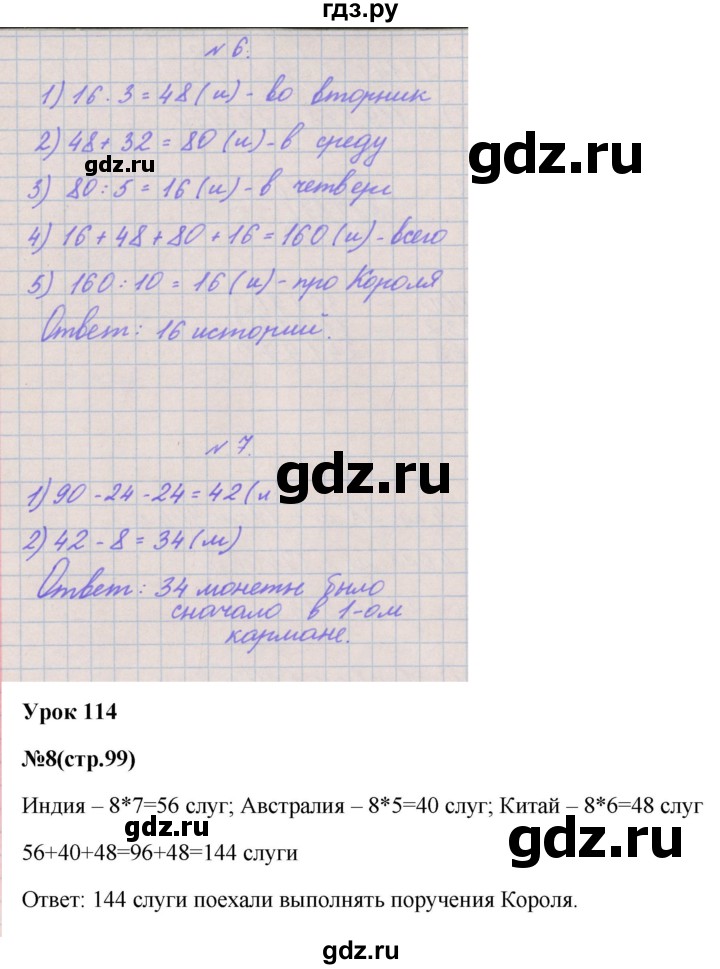 гдз.ру
№ 6.
1) 16 · 3 = 48 (и) - во вторник
2) 48 + 32 = 80 (и) - в среду
gdz.ru
3) 80 : 5 = 16 (и) - в четверг
gdz.ru
4) 16 + 48 + 80 + 16 = 160 (и) - всего
5) 160 : 10 = 16 (и) - про Короля
Ответ: 16 историй.
№ 7.
gdz.ru
gdz.ru
1) 90 - 24 - 24 = 42 (м
2) 42 - 8 = 34 (м)
Ответ: 34 монеты было
сначало в 1-ом
кармане.
gdz.ru
Урок 114
№8(стр.99)
Индия – 8*7=56 слуг; Австралия – 8*5=40 слуг; Китай – 8*6=48 слуг
gdz.ru
gdz.ru
56+40+48=96+48=144 слуги
Ответ: 144 слуги поехали выполнять поручения Короля.
gdz.ru